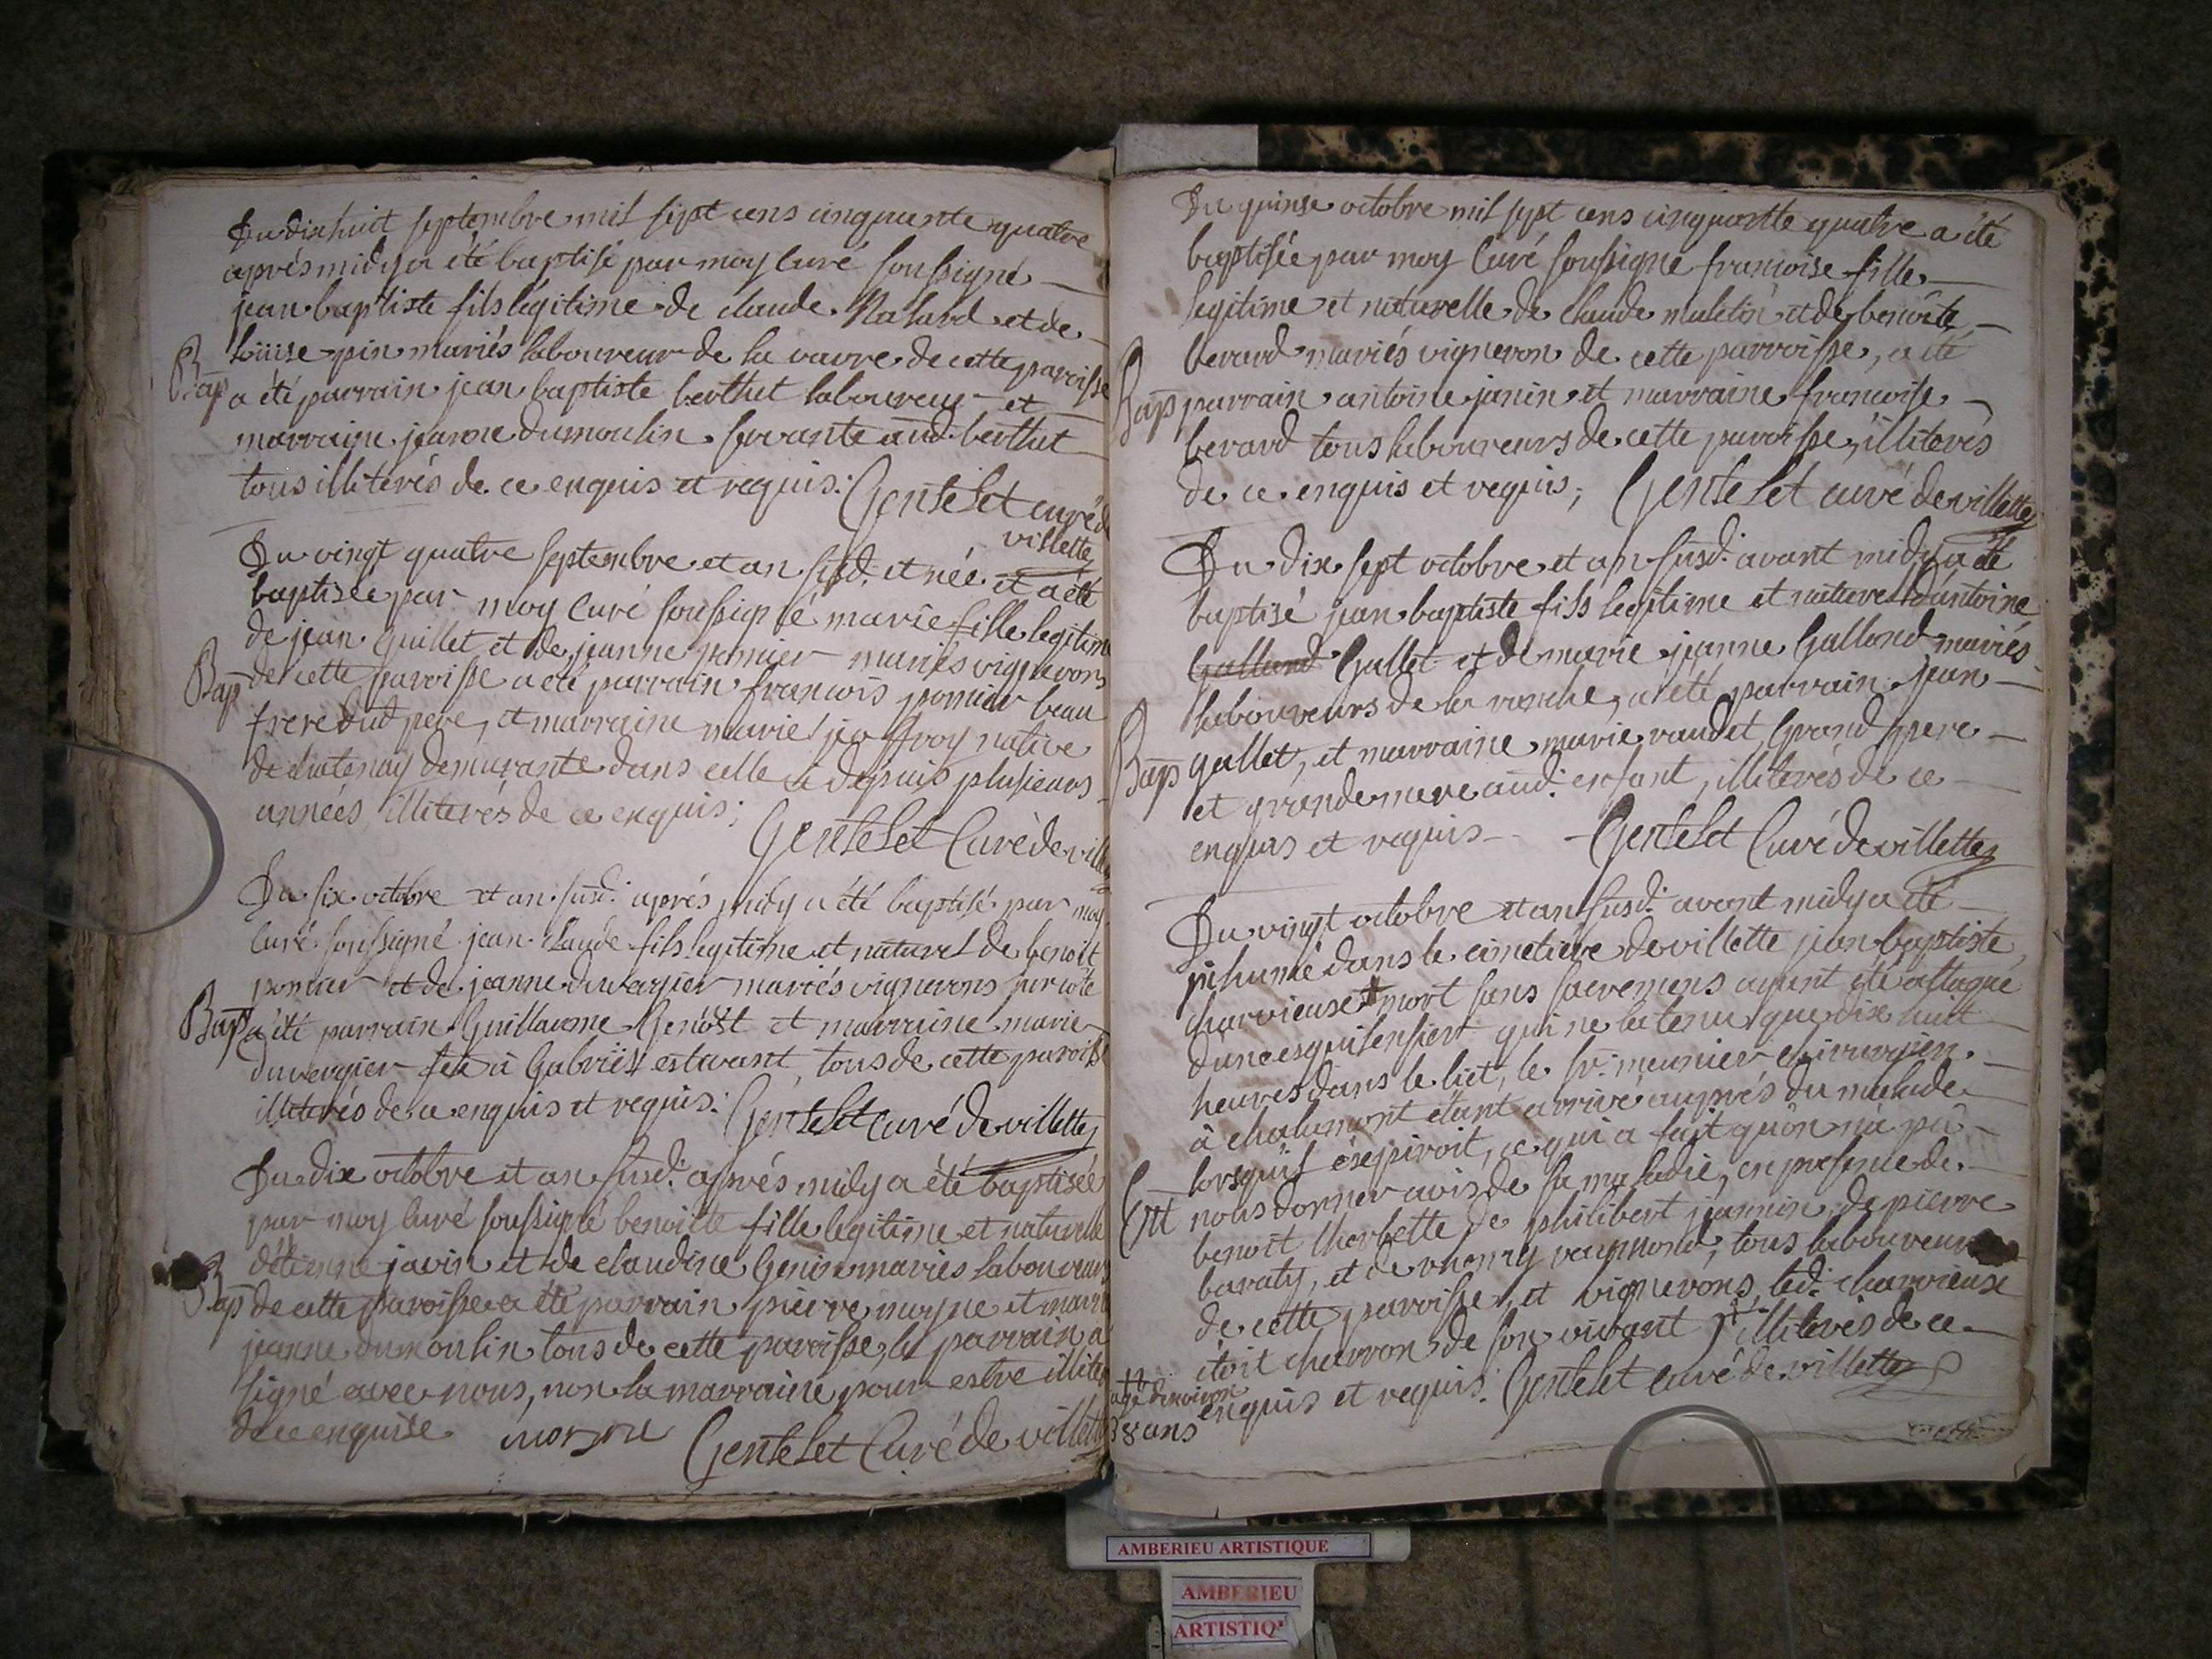 Du dix huit septembre mil sept cens cinquante quatre
après midy a été baptisé par moy Curé soussigné
jean baptiste fils légitime de claude et de
loüise pin mariés laboureur de la vavre de cette paroisse
Bap
a été parrain jean baptiste berthet laboureur et
marraine jeanne dumoulin servante aud. berthet
tous illiterés de ce enquis et requis. Gentelet curé de
villette
Du vingt quatre septembre et an susd. et née et a été
baptisée par moy Curé soussigné marie fille legitime
de jean guillet et de jeanne pomier mariés vignerons
Bap
de cette paroisse a été parrain francois pomier beau
frere dud pere, et marraine marie jeoffroy native
de chatenay demurante dans celle ci depuis plusieurs
années illiterés de ce enquis; Gentelet Curé de villette
Du six octobre et an susd. après midy a été baptisé par moy
Curé soussigné jean claude fils legitime et naturel de benoit
pomier et de jeanne duvergier mariés vignerons sur côte
Bap
a été parrain Guillaume Genost et marraine marie
duvergier feu à Gabriël estivant, tous de cette paroisse
illiterés de ce enquis et requis. Gentelet curé de villette
Du dix octobre et an susd. après midy a été baptisée
par moy curé soussigné benoitte fille legitime et naturelle
d'étienne javin et de claudine Genin mariés laboureurs
Bap
de cette paroisse a été parrain pierre moyne et marr
jeanne dumoulin tous de cette paroisse, le parrain a
signé avec nous, non la marraine pour estre illiter
de ce enquise Gentelet Curé de villette
Du quinse octobre mil sept cens cinquantte quatre a été
baptisée par moy Curé soussigné francoise fille
legitime et naturelle de claude muletin et de benoîte
berard mariés vigneron de cette parroisse, a été
Bap
parrain antoine janin et marraine francoise
berard tous laboureurs de cette paroisse, illiterés
de ce enquis et requis; Gentelet curé de villette
Du dix sept octobre et an susd. avant midy a été
baptisé jean baptiste fils legitime et naturel d'antoine
Galland Gallet et de marie jeanne Galland mariés
laboureurs de la ronche, a été parrain jean
Bap
gallet, et marraine marie vaudet grand pere
et grande mere aud. enfant, illiterés de ce
enquis et requis Gentelet Curé de villette
Du vingt octobre et an susd. avant midy a été
inhumé dans le cimetiere de villette jean baptiste
charvieuse + mort sans sacremens ayant été attaqué
d'une esquilensient qui ne la tenu que dix huit
heures dans le liet, le sr. meunier chirurgien
à chalamont étant arrivé auprés du malade
lorsquil éxepiroit, ce qui a fait quôn n'a pû
Ent
nous donner avis de sa maladie, en presence de
benoit charbette de philibert jeannin, de pierre
baraty, et de vnemy raymond, tous laboureurs
de cette paroisse, et vignerons, led. charvieuse
étoit charron de son vivant illiterés de ce
enquis et requis. Gentelet curé de villette
++
agé denviron
38 ans
AMBERIEU ARTISTIQUE
AMBERIEU
ARTISTIQ